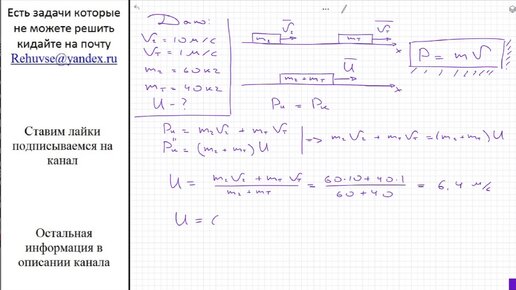 Есть задачи которые
не можете решить
кидайте на почту
Rehuvse@yandex.ru
Ставим лайки
подписываемся на
канал
Остальная
информация в
описании канала
Дано:
V₂ = 10 м/с
Vт = 1 м/с
m₂ = 60 кг
mт = 40 кг
U - ?
m₂ V₂ mт Vт
x
P = mV
m₂ + mт U
x
Pн = Pк
Pн = m₂V₂ + mтVт
Pк = (m₂+mт) U
=> m₂V₂ + mтVт = (m₂+mт) U
U = (m₂V₂ + mтVт)/(m₂+mт) = (60·10+40·1)/(60+40) = 6,4 м/с
U = 6